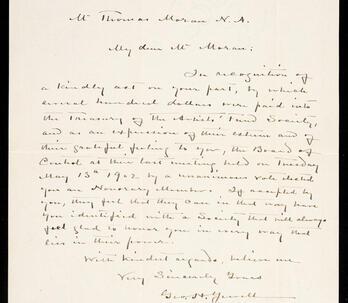 Mr Thomas Moran N.A.
My dear Mr Moran:
In recognition of
a kindly act on your part, by which
several hundred dollars were paid into
the Treasury of the Artists' Fund Society,
and as an expression of their esteem and of
their grateful feeling to you, the Board of
Control at their last meeting held on Tuesday
May 13th 1902 by a unanimous vote elected
you an Honorary Member. If accepted by
you, they feel that they can in that way have
you identified with a Society that will always
feel glad to honor you in every way that
lies in their power.
With kindest regards, believe me
Very Sincerely Yours
Geo. H. Yewell